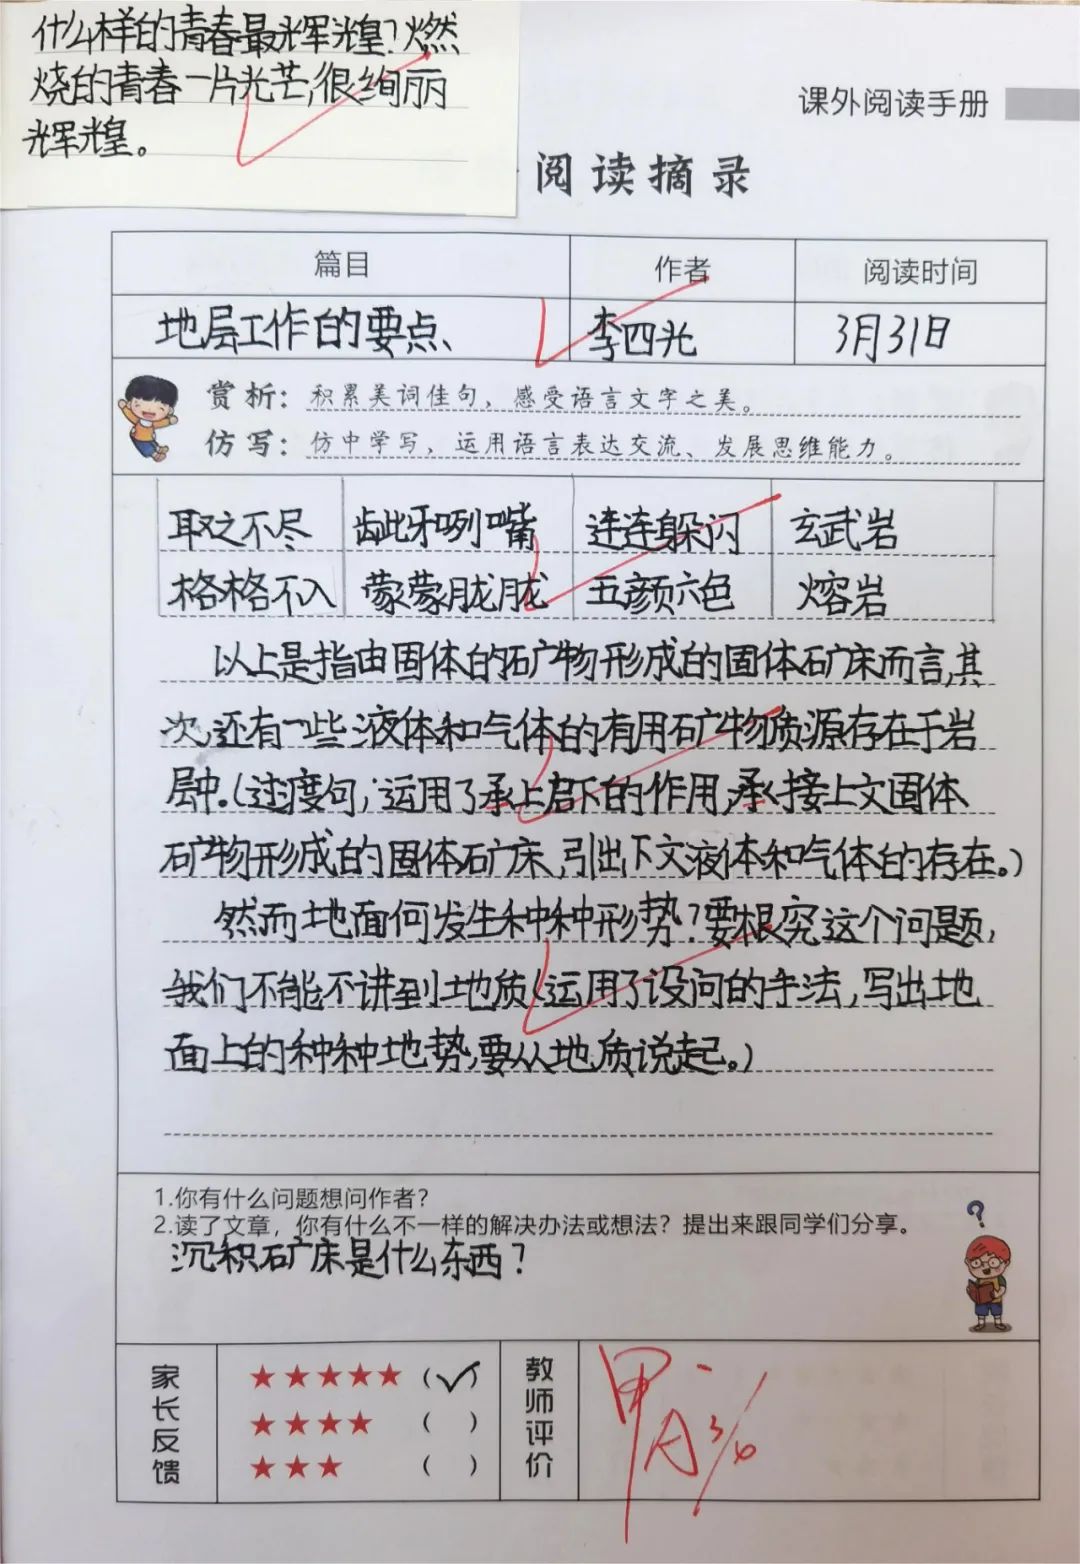 什么样的青春最辉煌?燃
烧的青春一片光芒,很绚丽
辉煌。
课外阅读手册
阅读摘录
篇目 作者 阅读时间
地层工作的要点、 李四光 3月31日
赏析：积累美词佳句，感受语言文字之美。
仿写：仿中学写，运用语言表达交流、发展思维能力。
取之不尽 龇牙咧嘴 连连躲闪 玄武岩
格格不入 蒙蒙胧胧 五颜六色 熔岩
以上是指由固体的矿物形成的固体矿床而言,其
次,还有一些液体和气体的有用矿物质源存在于岩
层中。(过度句,运用了承上启下的作用,承接上文固体
矿物形成的固体矿床,引出下文液体和气体的存在。)
然而地面何发生种种形势?要根究这个问题,
我们不能不讲到地质(运用了设问的手法,写出地
面上的种种地势,要从地质说起。)
1.你有什么问题想问作者?
2.读了文章，你有什么不一样的解决办法或想法？提出来跟同学们分享。
沉积矿床是什么东西?
家长反馈 ★★★★★ (✓) 教师评价 甲 A
★★★★ ( )
★★★ ( )